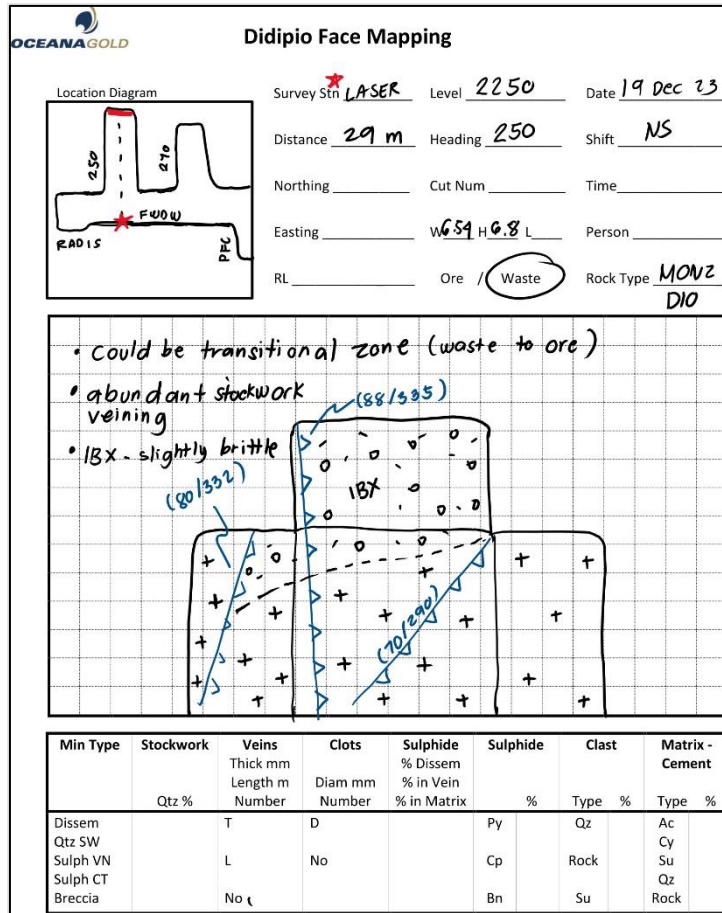 OCEANAGOLD
Didipio Face Mapping
Location Diagram
250
270
FWDW
RADIS
PFC
Survey Stn LASER Level 2250 Date 19 Dec 23
Distance 29 m Heading 250 Shift NS
Northing Cut Num Time
Easting W 6.54 H 6.8 L Person
RL Ore / Waste Rock Type MONZ
DIO
• Could be transitional zone (waste to ore)
• abundant stockwork
veining
• IBX - slightly brittle
(88/335)
(80/332)
IBX
(70/290)
Min Type Stockwork Veins Clots Sulphide Sulphide Clast Matrix -
Thick mm % Dissem Cement
Length m Diam mm % in Vein
Qtz % Number Number % in Matrix % Type % Type %
Dissem T D Py Qz Ac
Qtz SW Cy
Sulph VN L No Cp Rock Su
Sulph CT Qz
Breccia No Bn Su Rock